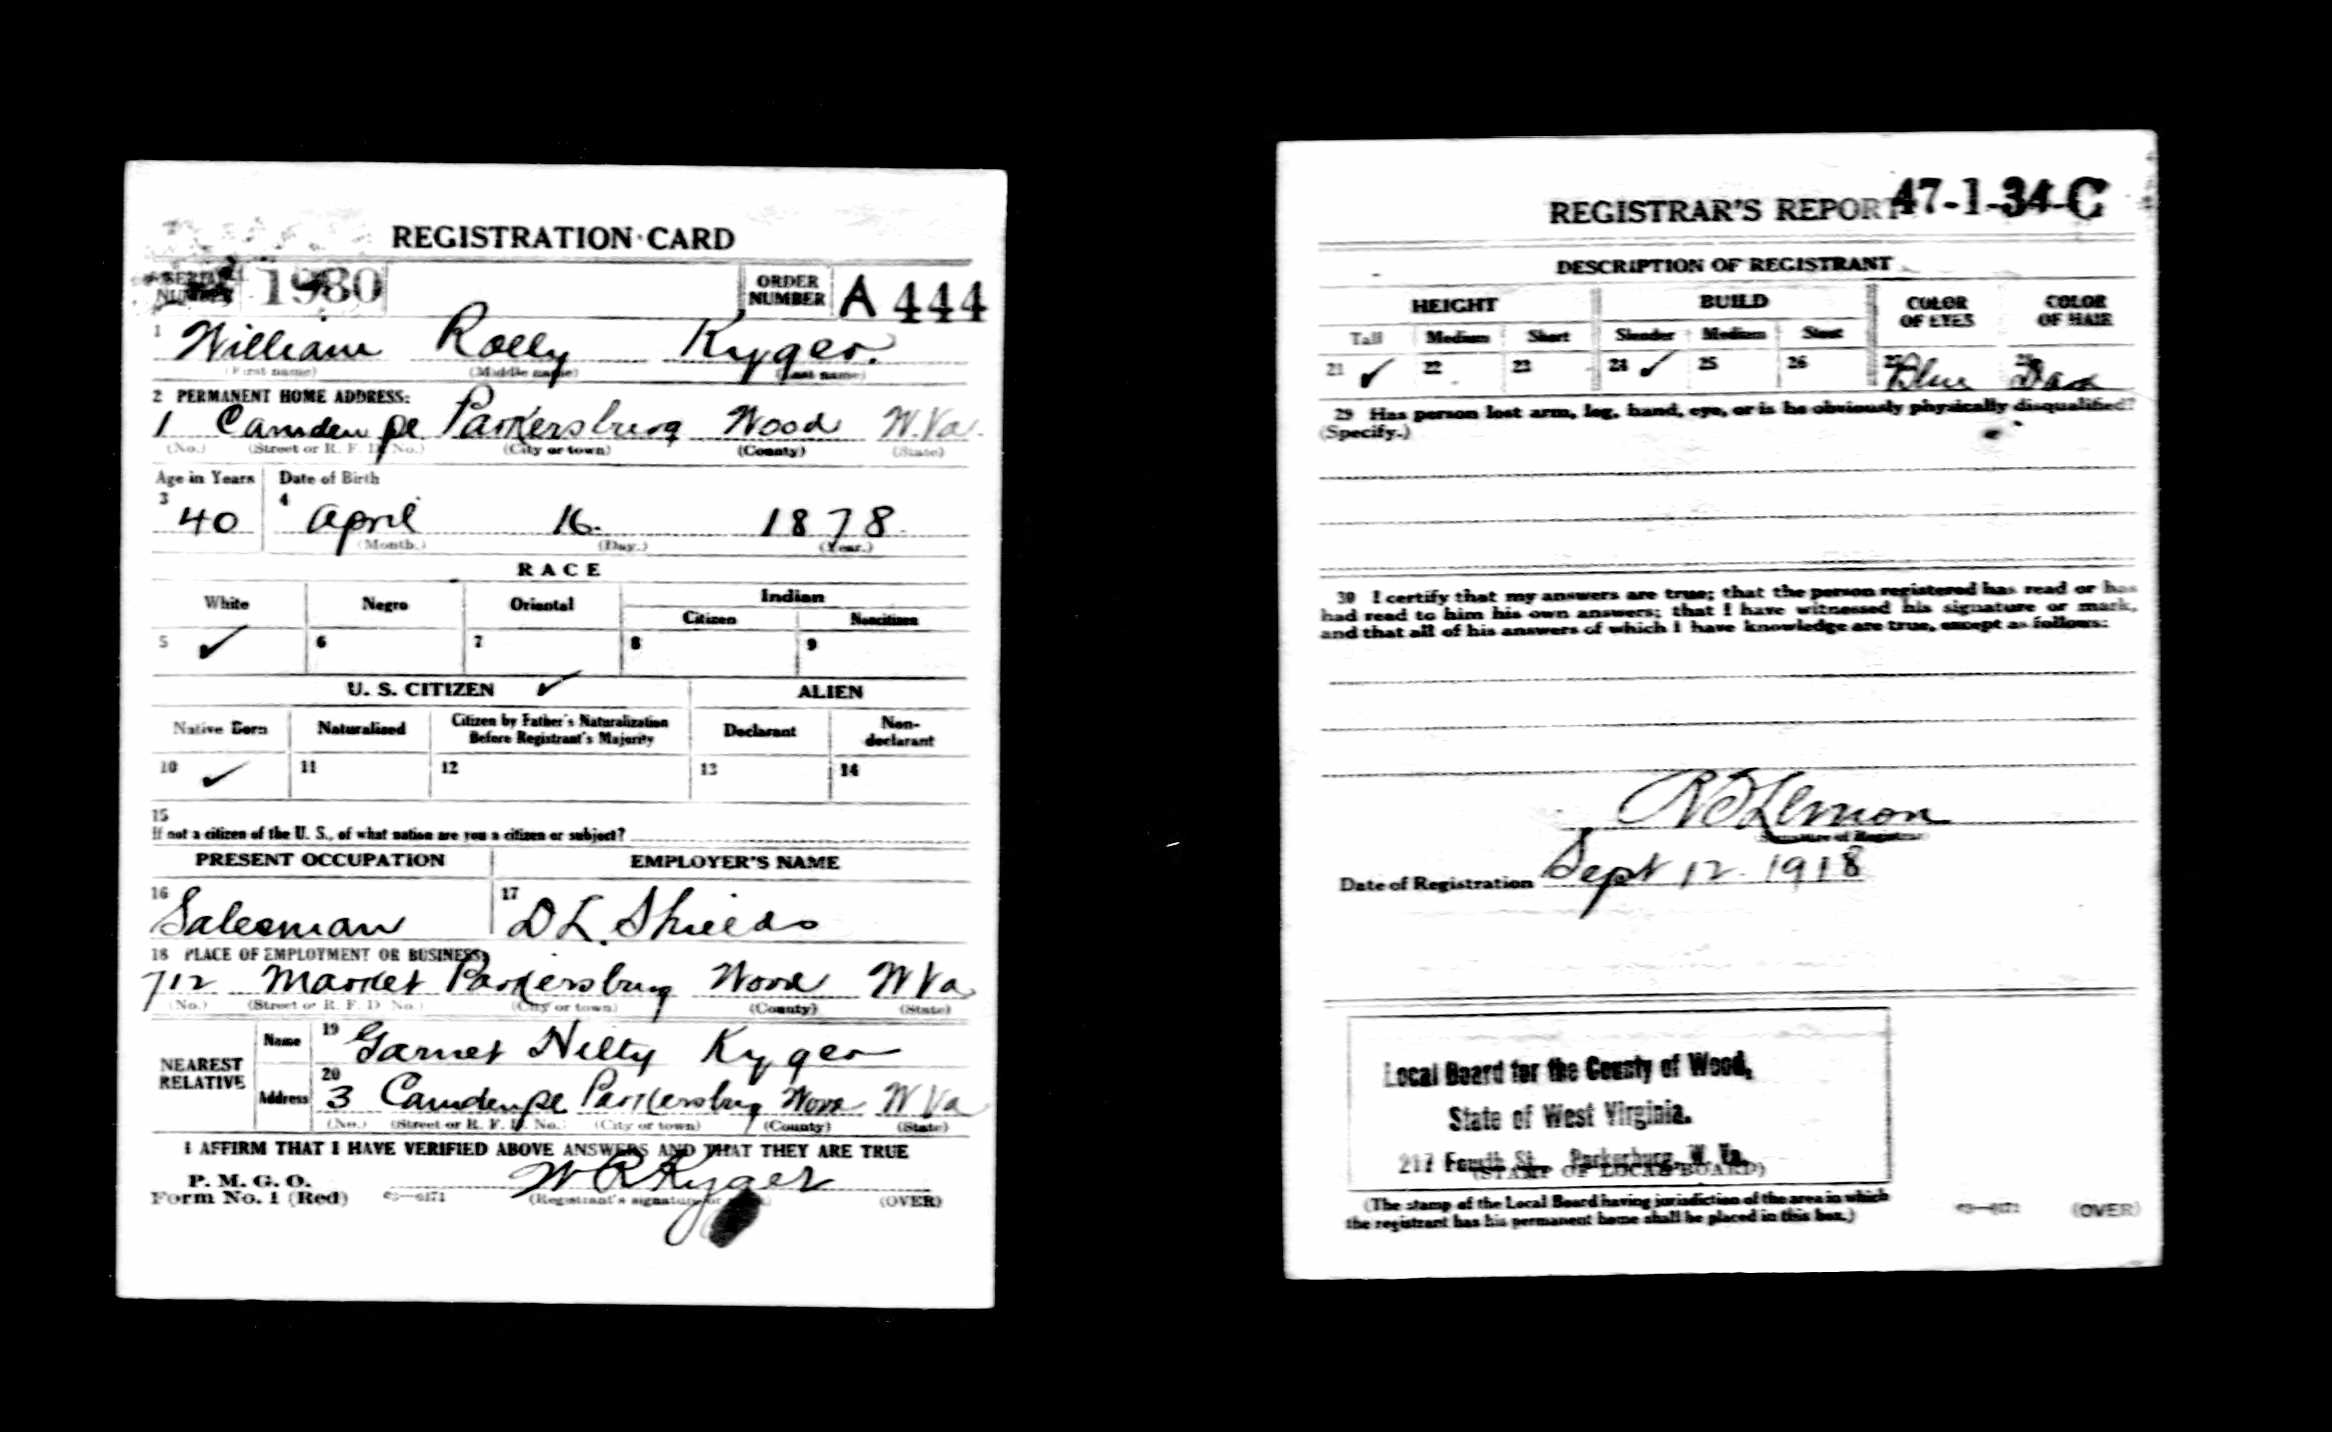 REGISTRATION CARD
SERIAL NUMBER 1980 ORDER NUMBER A 444
1 William Rolly Kyger.
(First name) (Middle name) (Last name)
2 PERMANENT HOME ADDRESS:
1 Camden pe Parkersburg Wood W.Va.
(No.) (Street or R. F. D. No.) (City or town) (County) (State)
Age in Years Date of Birth
3 40 4 April 16. 1878.
(Month.) (Day.) (Year.)
RACE
White Negro Oriental Indian
Citizen Noncitizen
5 ✓ 6 7 8 9
U. S. CITIZEN ✓ ALIEN
Native Born Naturalized Citizen by Father's Naturalization Before Registrant's Majority Declarant Non-declarant
10 ✓ 11 12 13 14
15
If not a citizen of the U. S., of what nation are you a citizen or subject?
PRESENT OCCUPATION EMPLOYER'S NAME
16 Salesman 17 D L. Shields
18 PLACE OF EMPLOYMENT OR BUSINESS:
712 Market Parkersburg Wood W Va
(No.) (Street or R. F. D. No.) (City or town) (County) (State)
NEAREST RELATIVE
Name 19 Garnet Kyger
Address 20 3 Camden pe Parkersburg Wood W Va
(No.) (Street or R. F. D. No.) (City or town) (County) (State)
I AFFIRM THAT I HAVE VERIFIED ABOVE ANSWERS AND THAT THEY ARE TRUE
P. M. G. O.
Form No. 1 (Red) W R Kyger
(Registrant's signature or (OVER)
REGISTRAR'S REPORT 47-1-34-C
DESCRIPTION OF REGISTRANT
HEIGHT BUILD COLOR OF EYES COLOR OF HAIR
Tall Medium Short Slender Medium Stout
21 ✓ 22 23 24 ✓ 25 26 27 Blue 28
29 Has person lost arm, leg, hand, eye, or is he obviously physically disqualified?
(Specify.)
30 I certify that my answers are true; that the person registered has read or has
had read to him his own answers; that I have witnessed his signature or mark,
and that all of his answers of which I have knowledge are true, except as follows:
Lemon
(Signature of Registrar)
Date of Registration Sept 12 1918
Local Board for the County of Wood,
State of West Virginia.
217 Fourth St., Parkersburg, W. Va.
(STAMP OF LOCAL BOARD)
(The stamp of the Local Board having jurisdiction of the area in which
the registrant has his permanent home shall be placed in this box.)
(OVER)